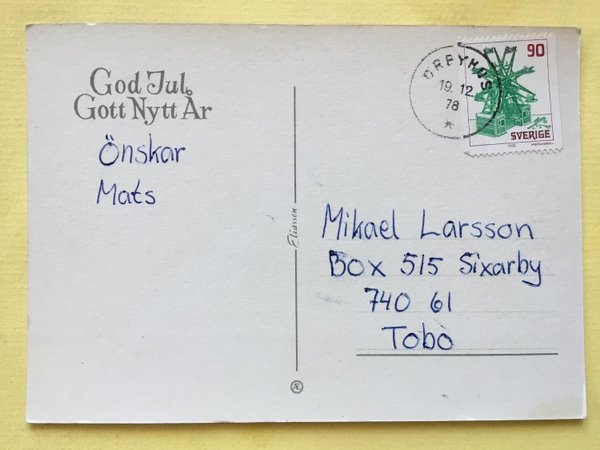 God Jul.
Gott Nytt År
Önskar
Mats
ÖRBYHUS
19. 12.
78
*
90
SVERIGE
1978
Eliasson
Mikael Larsson
Box 515 Sixarby
740 61
Tobo